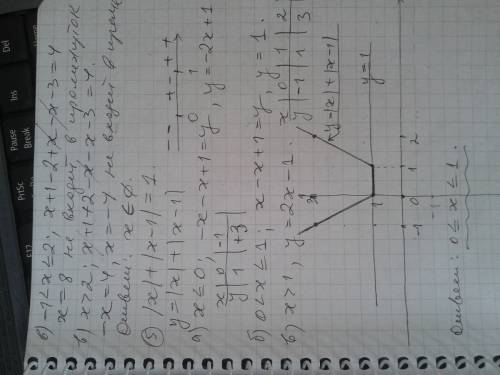 б) -1<x≤2, x+1-2+x-x-3=4
x=8 не входит в промежуток
в) x>2, x+1+2-x-x-3=4
-x=4, x=-4 не входит в
Ответ: x∈∅.
⑤ |x|+|x-1|=1.
y=|x|+|x-1|
- - 0 + - 1 + +
а) x≤0, -x-x+1=y, y=-2x+1
x|0|-1
y|1|+3
б) 0<x≤1; x-x+1=y, y=1.
в) x>1, y=2x-1.
x|0|1|2
y|-1|1|3
y=|x|+|x-1|
y=1
-1 0 1 2
1
3
-1
Ответ: 0≤x≤1.
Del
Ins
Pause
Break
PrtSc
SysRq
F12